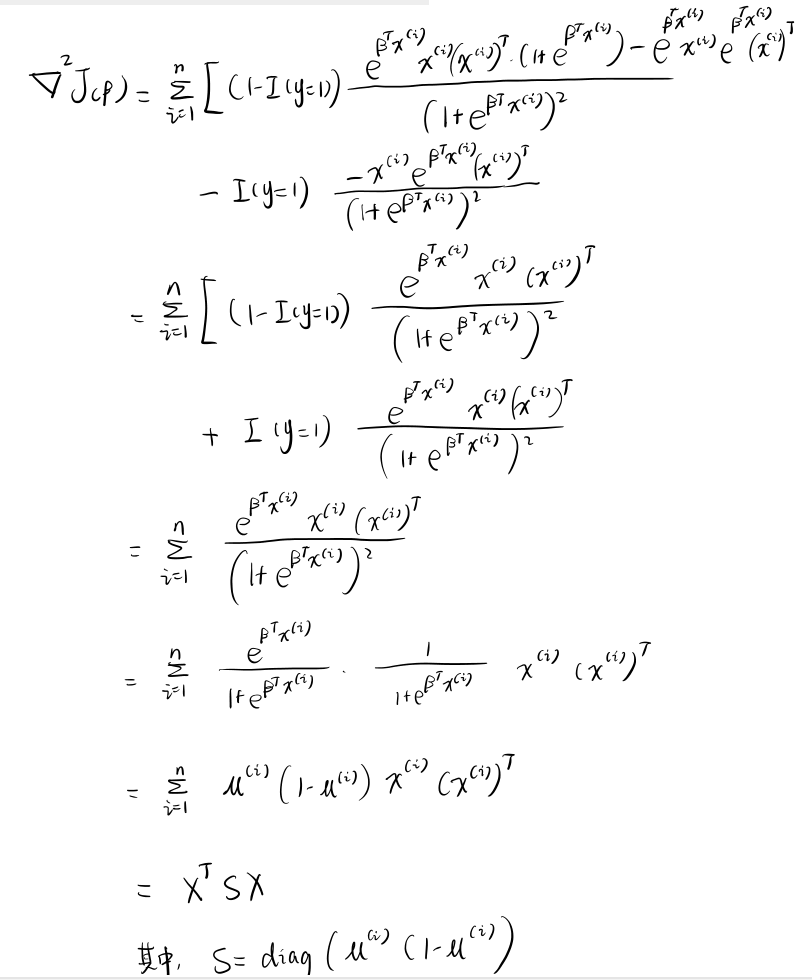 ∇²J(β) = Σ_{i=1}^{n} [ (1-I(y=1)) \frac{e^{β^T x^{(i)}} x^{(i)} (x^{(i)})^T · (1+e^{β^T x^{(i)}}) - e^{β^T x^{(i)}} x^{(i)} e^{β^T x^{(i)}} (x^{(i)})^T}{(1+e^{β^T x^{(i)}})^2}
- I(y=1) \frac{-x^{(i)} e^{β^T x^{(i)}} (x^{(i)})^T}{(1+e^{β^T x^{(i)}})^2}
= Σ_{i=1}^{n} [ (1-I(y=1)) \frac{e^{β^T x^{(i)}} x^{(i)} (x^{(i)})^T}{(1+e^{β^T x^{(i)}})^2}
+ I(y=1) \frac{e^{β^T x^{(i)}} x^{(i)} (x^{(i)})^T}{(1+e^{β^T x^{(i)}})^2}
= Σ_{i=1}^{n} \frac{e^{β^T x^{(i)}} x^{(i)} (x^{(i)})^T}{(1+e^{β^T x^{(i)}})^2}
= Σ_{i=1}^{n} \frac{e^{β^T x^{(i)}}}{1+e^{β^T x^{(i)}}} · \frac{1}{1+e^{β^T x^{(i)}}} x^{(i)} (x^{(i)})^T
= Σ_{i=1}^{n} μ^{(i)} (1-μ^{(i)}) x^{(i)} (x^{(i)})^T
= X^T S X
其中, S = diag (μ^{(i)} (1-μ^{(i)})